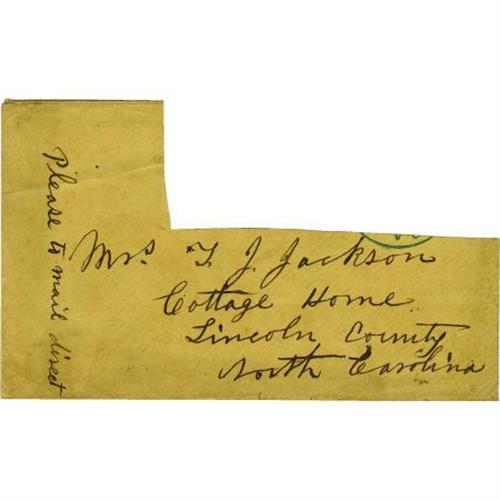 Please to mail direct
Mrs. T. J. Jackson
Cottage Home
Lincoln County
North Carolina